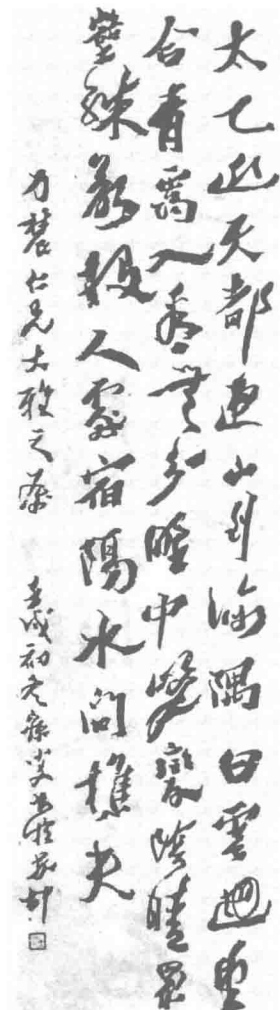 太乙近天都連山到海隅白雲迴望
合青靄入看無分野中峰變陰晴眾
壑殊欲投人處宿隔水問樵夫
仁兄大雅之屬 壬戌初冬